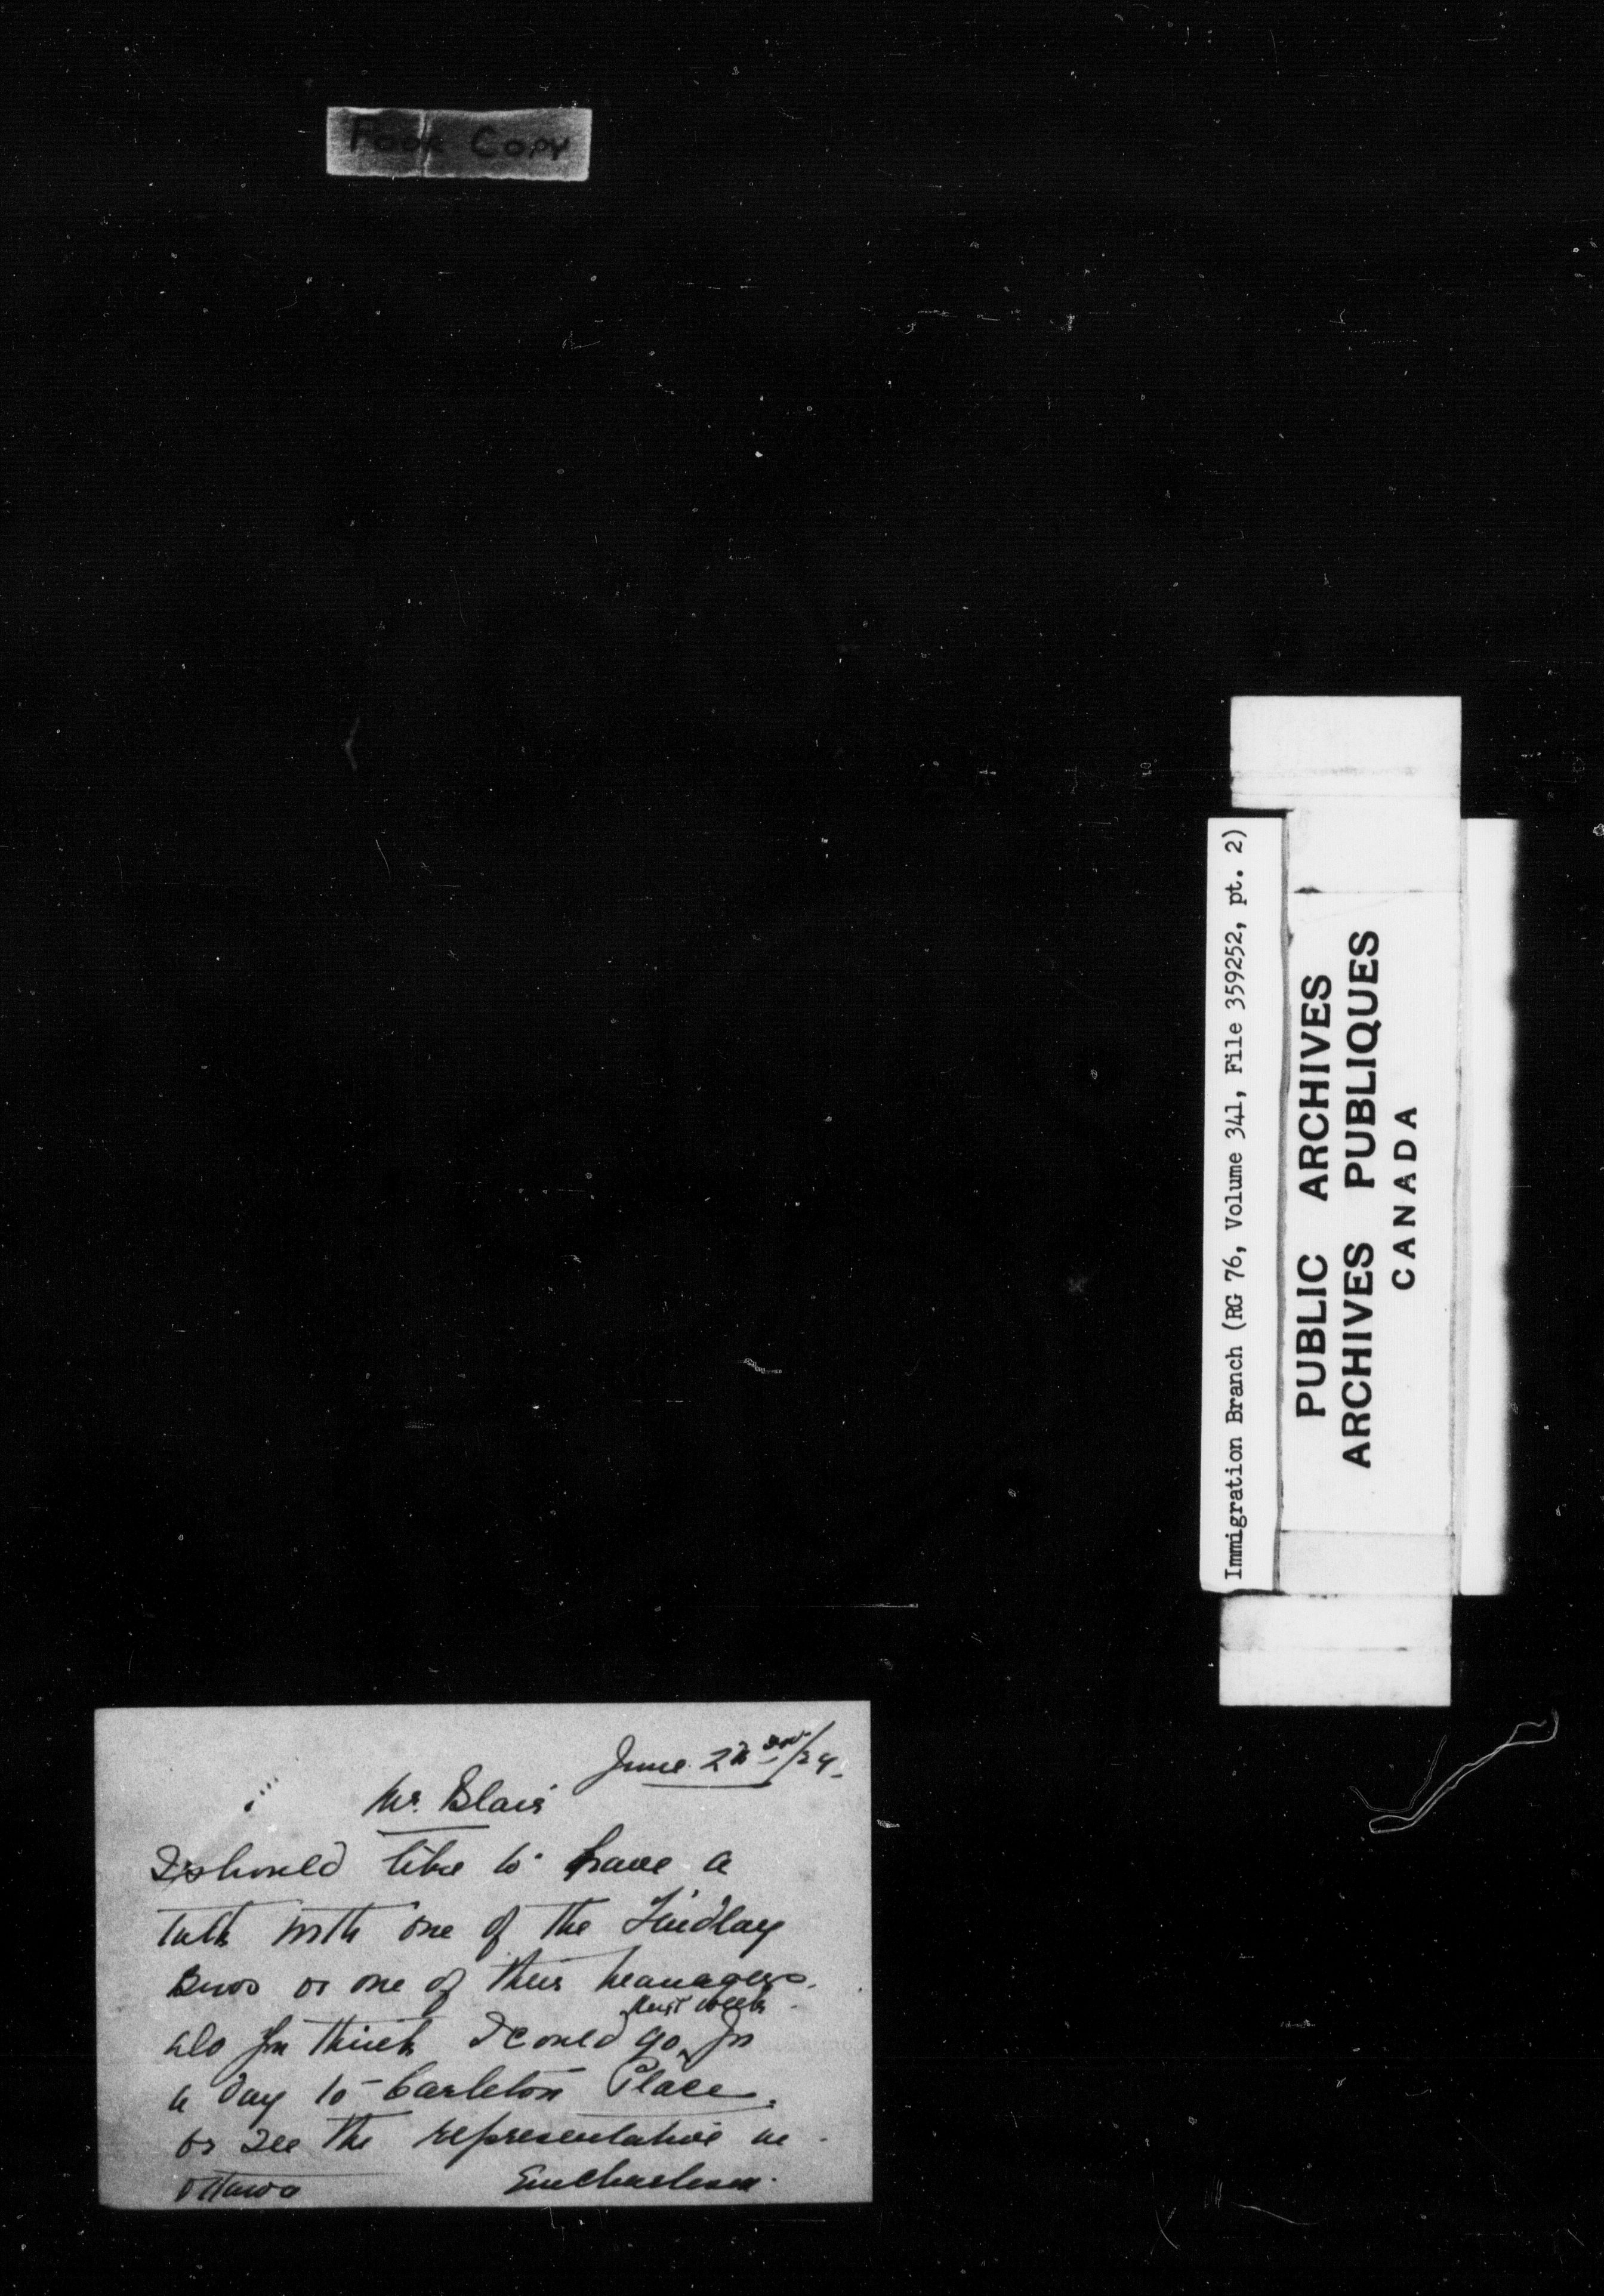 Poor Copy
Immigration Branch (RG 76, Volume 341, File 359252, pt. 2)
PUBLIC ARCHIVES
ARCHIVES PUBLIQUES
CANADA
June /24
Mr. Blair
I should like to have a
talk with one of the Findlay
Bros or one of their managers.
next week
do you think I could go for
a day to Carleton Place.
or see the representative in
Ottawa